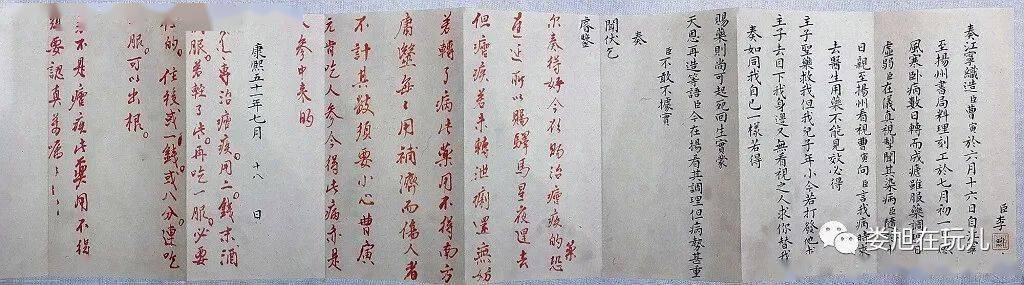 臣李
奏江寧織造臣曹寅於六月十六日自江
至揚州書局料理刻工於七月初一感
風寒臥病數日轉而成瘧雖服藥調
虛弱臣在儀真視掣聞其染病臣
日親至揚州看視曹寅向臣言我病時來
去醫生用藥不能見效必得
主子聖藥救我但我兒子年小今若打發他求
主子去目下我身邊又無看視之人求你替我
奏如同我自己一樣若得
賜藥則尚可起死回生實蒙
天恩再造等語臣今在揚看其調理但病勢甚重
臣不敢不據實
奏
聞伏乞
睿鑒
尔奏得好今欲賜治瘧疾的藥恐
遲延所以賜驛馬星夜趕去
但瘧疾若未轉泄痢還無妨
若轉了病此藥用不得南方
庸醫每々用補濟而傷人者
不計其數須要小心曹寅
元肯吃人參今得此病亦是
人參中來的
康熙五十一年七月 十八 日
專治瘧疾用二錢末酒
服若輕了些再吃一服必要
住的住後或一錢或八分連吃
服可以出根
不是瘧疾此藥用不得
須要認真萬囑々々
娄旭在玩儿